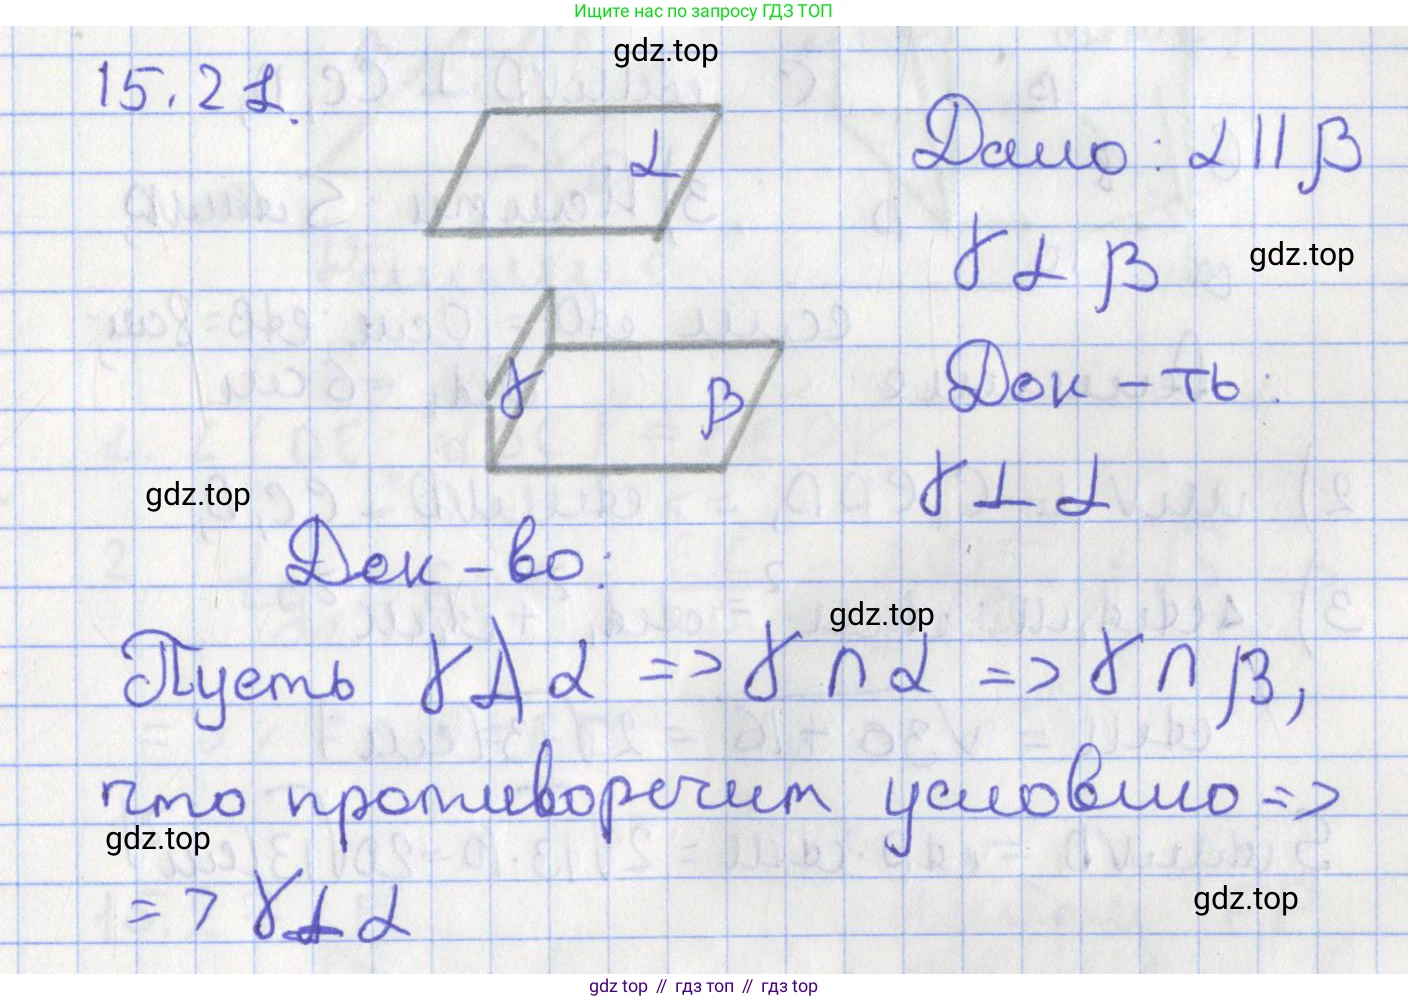 Ищите нас по запросу ГДЗ ТОП
gdz.top
15.21.
α
Дано: α || β
γ ⊥ β
gdz.top
γ
β
Док-ть:
γ ⊥ α
gdz.top
Док-во:
gdz.top
Пусть γ ⊥̸ α => γ ∩ α => γ ∩ β,
что противоречит условию =>
gdz.top
=> γ ⊥ α
gdz.top
gdz top // гдз топ // gdz top